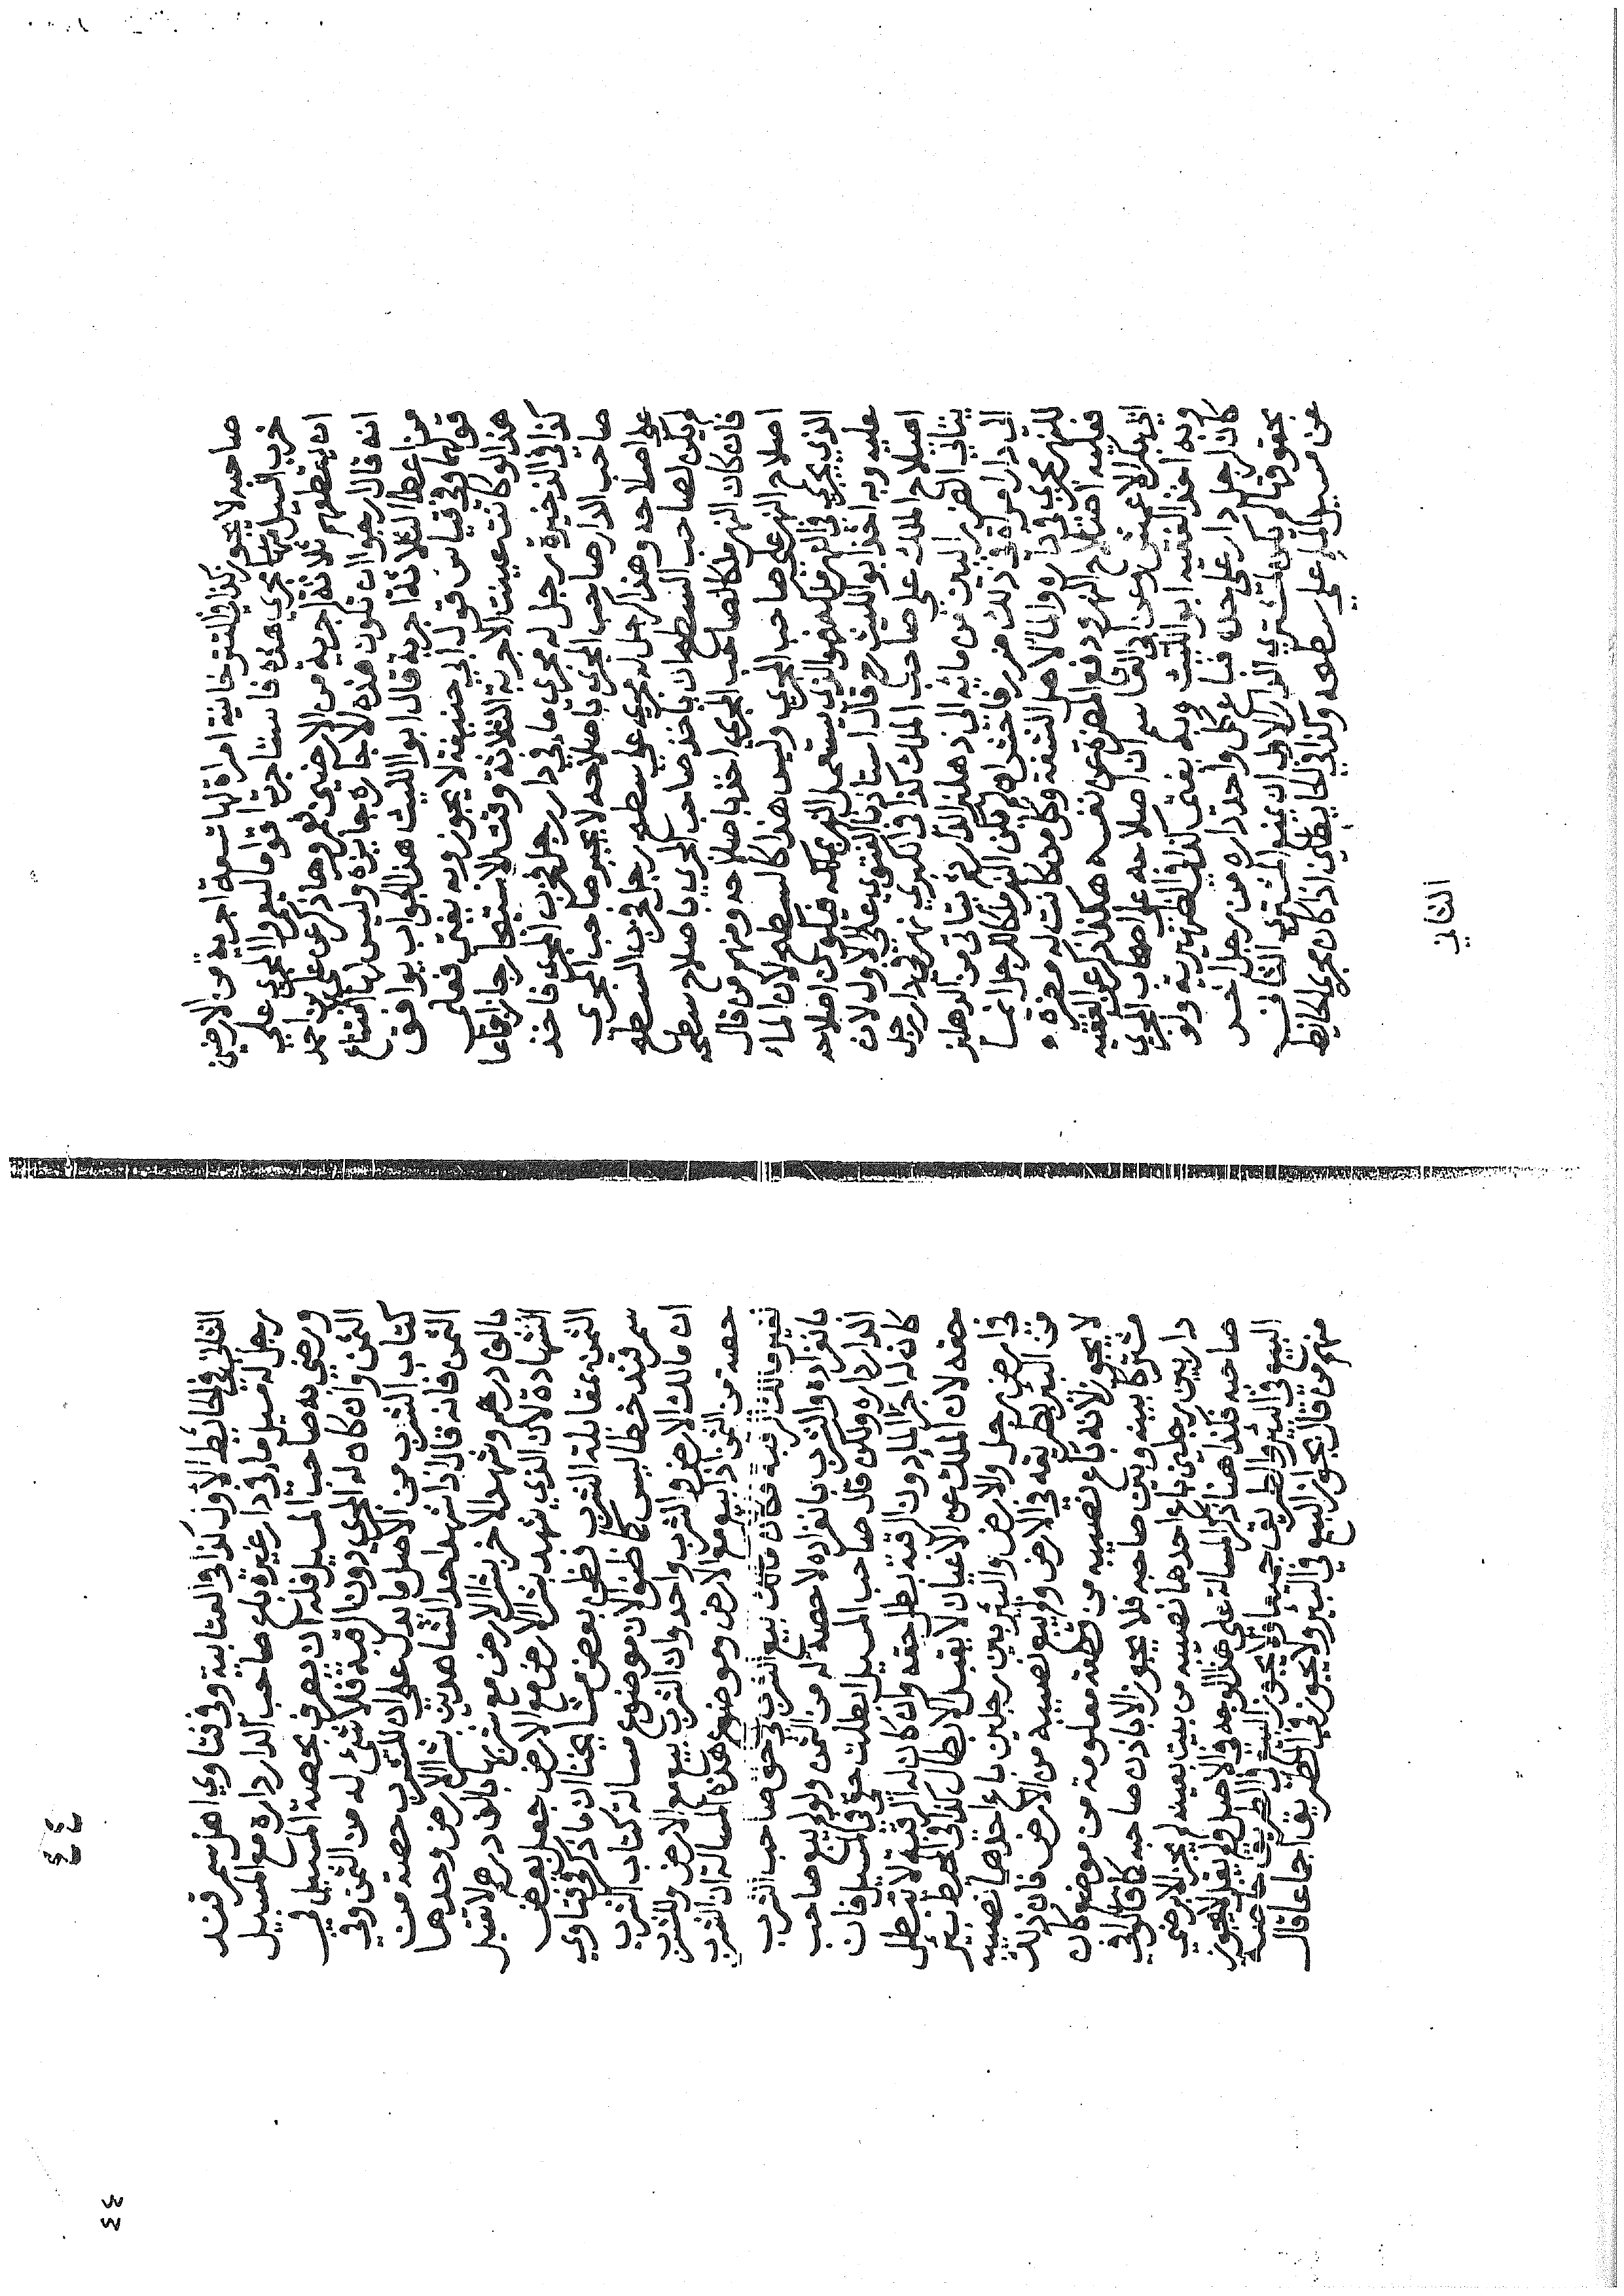 صاحبه لا يجوز كذا في التتر خانية امراة لها تسعة اجربة من الارضين
خرب السيل نهرا مجري هذه فاستاجرت اقواما ليعمروا المجري علي
ان يعطيهم ثلاثة اجربة من الارضين فعمروها ذكر عن علي بن احمد
انه قال ارجوا ان تكون هذه الاجارة جايزة وليس لها امتناع
من اعطا الثلاثة اجربة قال ابو الليث هذا الجواب يوافق
قولهما وفي قياس قول ابي حنيفة لا يجوز وبه يفتي فعلي
هذا لو كانت عينت الاجربة الثلاثة وقت الاستيجار جاز اجماعا
كذا في الذخيرة رجل له مجري ماء في دار رجل فخرب المجري فاخذ
صاحب الدار صاحب المجري باصلاحه لا يجبر صاحب المجري
علي اصلاحه وهذا كرجل له مجري علي سطح رجل فخرب السطح
لم يكن لصاحب السطح ان ياخذ صاحب المجري باصلاح سطحه
فان كان النهر ملكا لصاحب المجري اخذ باصلاحه ومنهم من قال
اصلاح النهر علي صاحب المجري وليس هذا كالسطح لان الماء
الذي يجري في النهر ملكه فهو الذي يستعمل النهر بملكه فيكون اصلاحه
عليه وبه اخذ ابو الليث رح قال استاذنا الفتوي علي الاول لان
اصلاح الملك علي صاحب الملك كذا في الكبري نهر في دار رجل
يتاتي الضرر البين من مايه الي دهليز الدار ثم يتاتي من الدهليز
الي دار امراة في ذلك ضرر فاحش ان لم يكن النهر ملكا للرجل انما
للنهر مجري في داره والماء لاهل الشفة وكل من كانت له مضرة
فعليه اصلاح النهر ودفع المضرة عن نفسه هكذا ذكر عن الفقيه
ابي بكر الاعمش وعن ابي القاسم ان اصلاحه علي اصحاب المجري
وبه اخذ الفقيه ابو الليث وبه يفتي كذا في الظهيرية ولو
كان لرجل دار علي حدة فباع كل واحد داره من رجل اخر
بحقوقها لم يكن لمشتري الدار الاولي ان يمنع المشتري الثاني
عن مسيل الماء علي سطحه وكذا في الحايطين اذا كان مجري الحايط
الثاني
الثاني في الحائط الأول كذا في العتابية وفي فتاوي اهل سمرقند
رجل له مسيل ماء في دار غيره باع صاحب الدار داره مع المسيل
ورضي به صاحب المسيل فله ان يضرب بحصة المسيل في
الثمن وان كان له المجري دون الرقبة فلا شئ له من الثمن وفي
كتاب الشرب من الاصل ما يدل علي ان للشرب حصة من
الثمن فانه قال اذا شهد احد الشاهدين بشرا الارض وحدها
بالف درهم وشهد الاخر بشرا الارض مع شربها بالف درهم لا تقبل
الشهادة لان الذي شهد بشرا الارض مع الارض جعل بعض
الثمن بمقابلة الشرب فظن بعض مشايخنا ان ما ذكر في فتاوي
سمرقند خطا ليس كما ظنوا لان موضوع مسالة كتاب الشرب
ان مالك الارض والشرب واحد وان الشرب بيع مع الارض وللشرب
حصة من الثمن اذا بيع مع الارض وموضوع هذه المسالة ان الشرب
لغير مالك الرقبة فكان مالك بيع الشرب في حق صاحب الشرب
بانفراده والشرب بانفراده لا حصة له من الثمن ولو لم يبع صاحب
الدار داره ولكن قال صاحب المسيل ابطلت حقي في المسيل فان
كان له اجراء الماء دون الرقبة بطل حقه وان كان له الرقبة لا تبطل
حقه لان الملك عن الاعيان لا يقبل الابطال كذا في المحيط بير
في ارض رجل والارض والبئر بين رجلين باع احدهما نصيبه
من البئر بطريقه في الارض ولم يبع نصيبه من الارض فان ذلك
لا يجوز لانه باع نصيبه من قطعة معلومة من موضع كان
مشتركا بينه وبين صاحبه فلا يجوز الا باذن صاحبه كما قالوا في
دار بين رجلين باع احدهما نصيبه من بيت بعينه لم يجز الا برضي
صاحبه فكذا هنا ذكر المسالة علي هذا الوجه في الاصل ولم يقل لا يجوز
البيع في البئر والطريق جميعا ولا يجوز البيع في الطريق خاصة
منهم من قال يجوز البيع في البير ولا يجوز في الطريق اجماعا قال
٤٤
٤٤